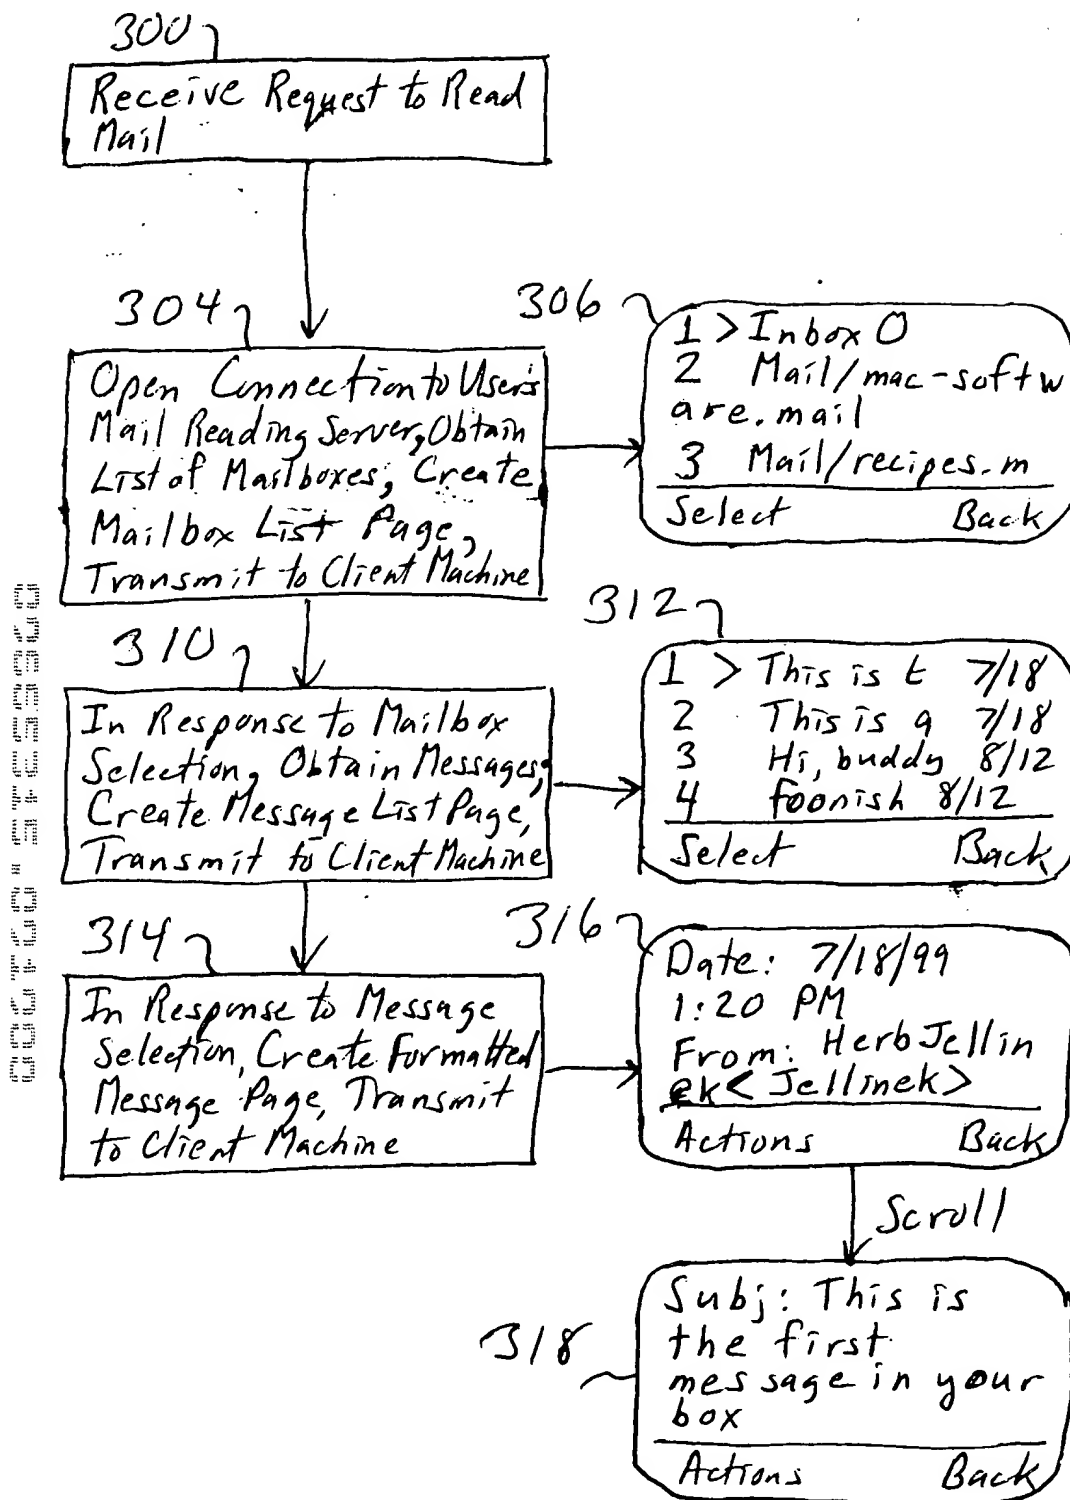 300
Receive Request to Read
Mail
304
Open Connection to User's
Mail Reading Server, Obtain
List of Mailboxes, Create
Mailbox List Page,
Transmit to Client Machine
306
1 > Inbox 0
2 Mail/mac-softw
are.mail
3 Mail/recipes.m
Select Back
310
In Response to Mailbox
Selection, Obtain Messages,
Create Message List Page,
Transmit to Client Machine
312
1 > This is t 7/18
2 This is a 7/18
3 Hi, buddy 8/12
4 foonish 8/12
Select Back
314
In Response to Message
Selection, Create Formatted
Message Page, Transmit
to Client Machine
316
Date: 7/18/99
1:20 PM
From: Herb Jellin
ek< Jellinek>
Actions Back
Scroll
318
Subj: This is
the first
message in your
box
Actions Back